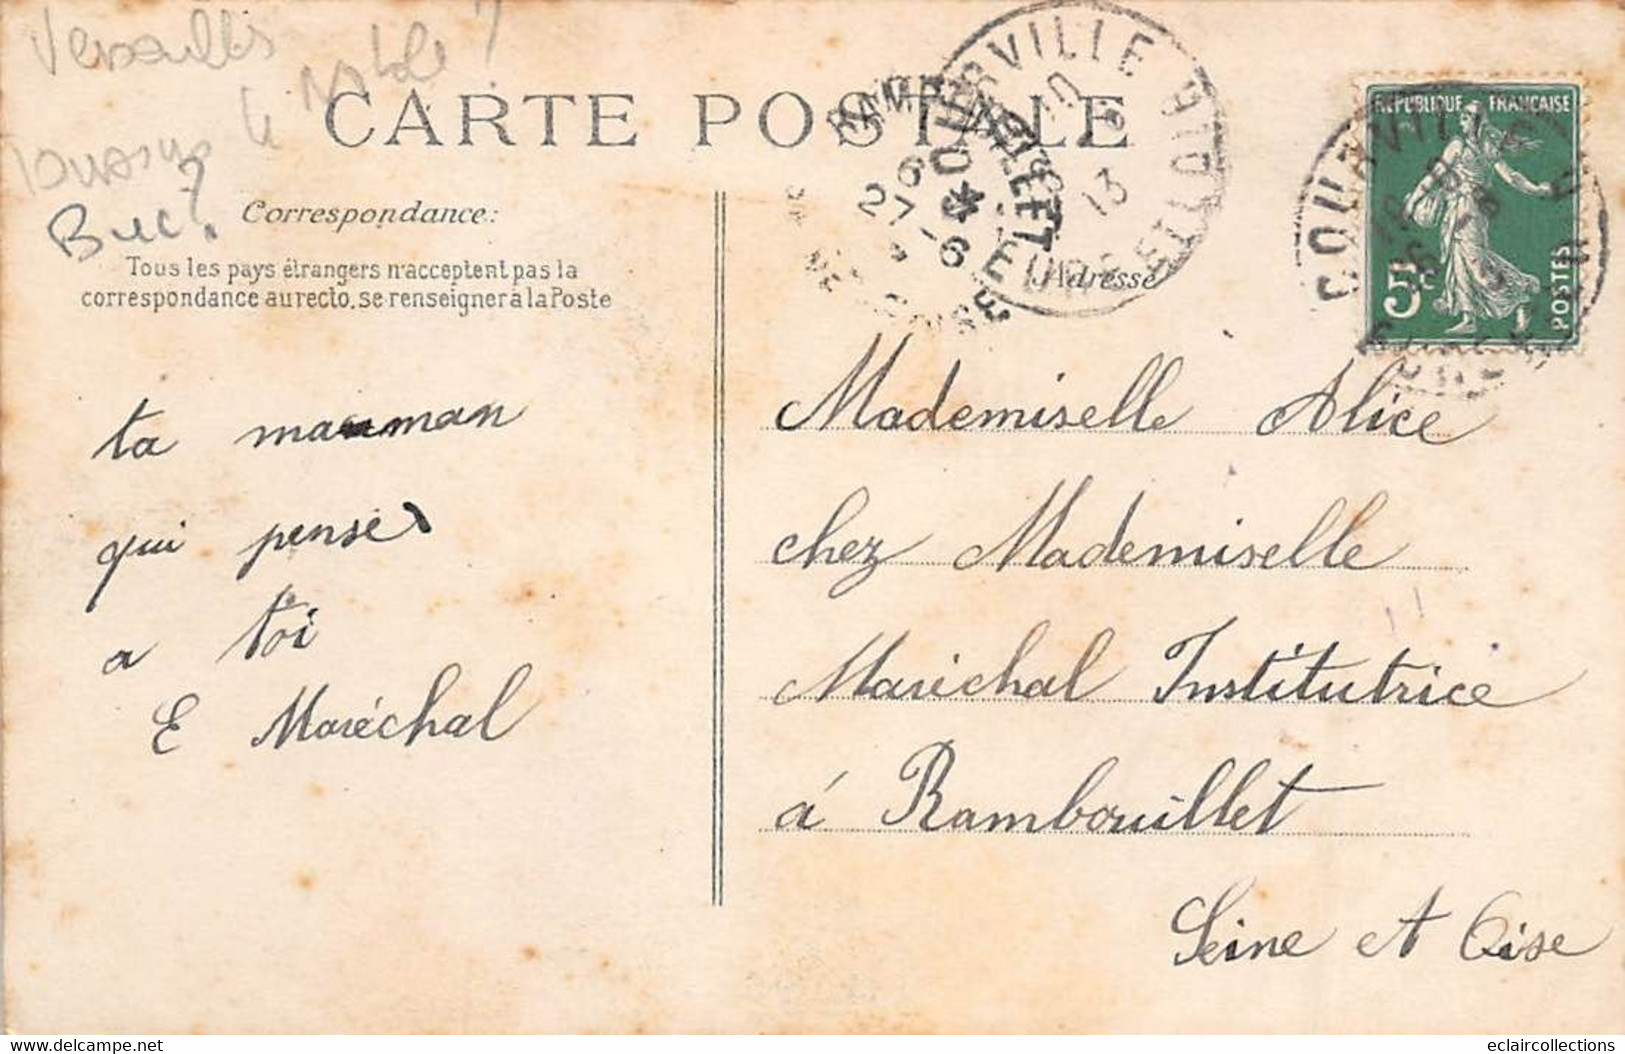 Versailles
Buc?
CARTE POSTALE
Correspondance:
Tous les pays étrangers n'acceptent pas la
correspondance au recto, se renseigner à la Poste
Adresse
COURVILLE
EURE ET LOIR
13
RAMBOUILLET
SEINE ET OISE
27-6
RÉPUBLIQUE FRANÇAISE
5c
POSTES
COURVILLE
ta maman
qui pense
a toi
E Maréchal
Mademoiselle Alice
chez Mademiselle
Maréchal Institutrice
á Rambouillet
Seine et Oise
eclaircollections